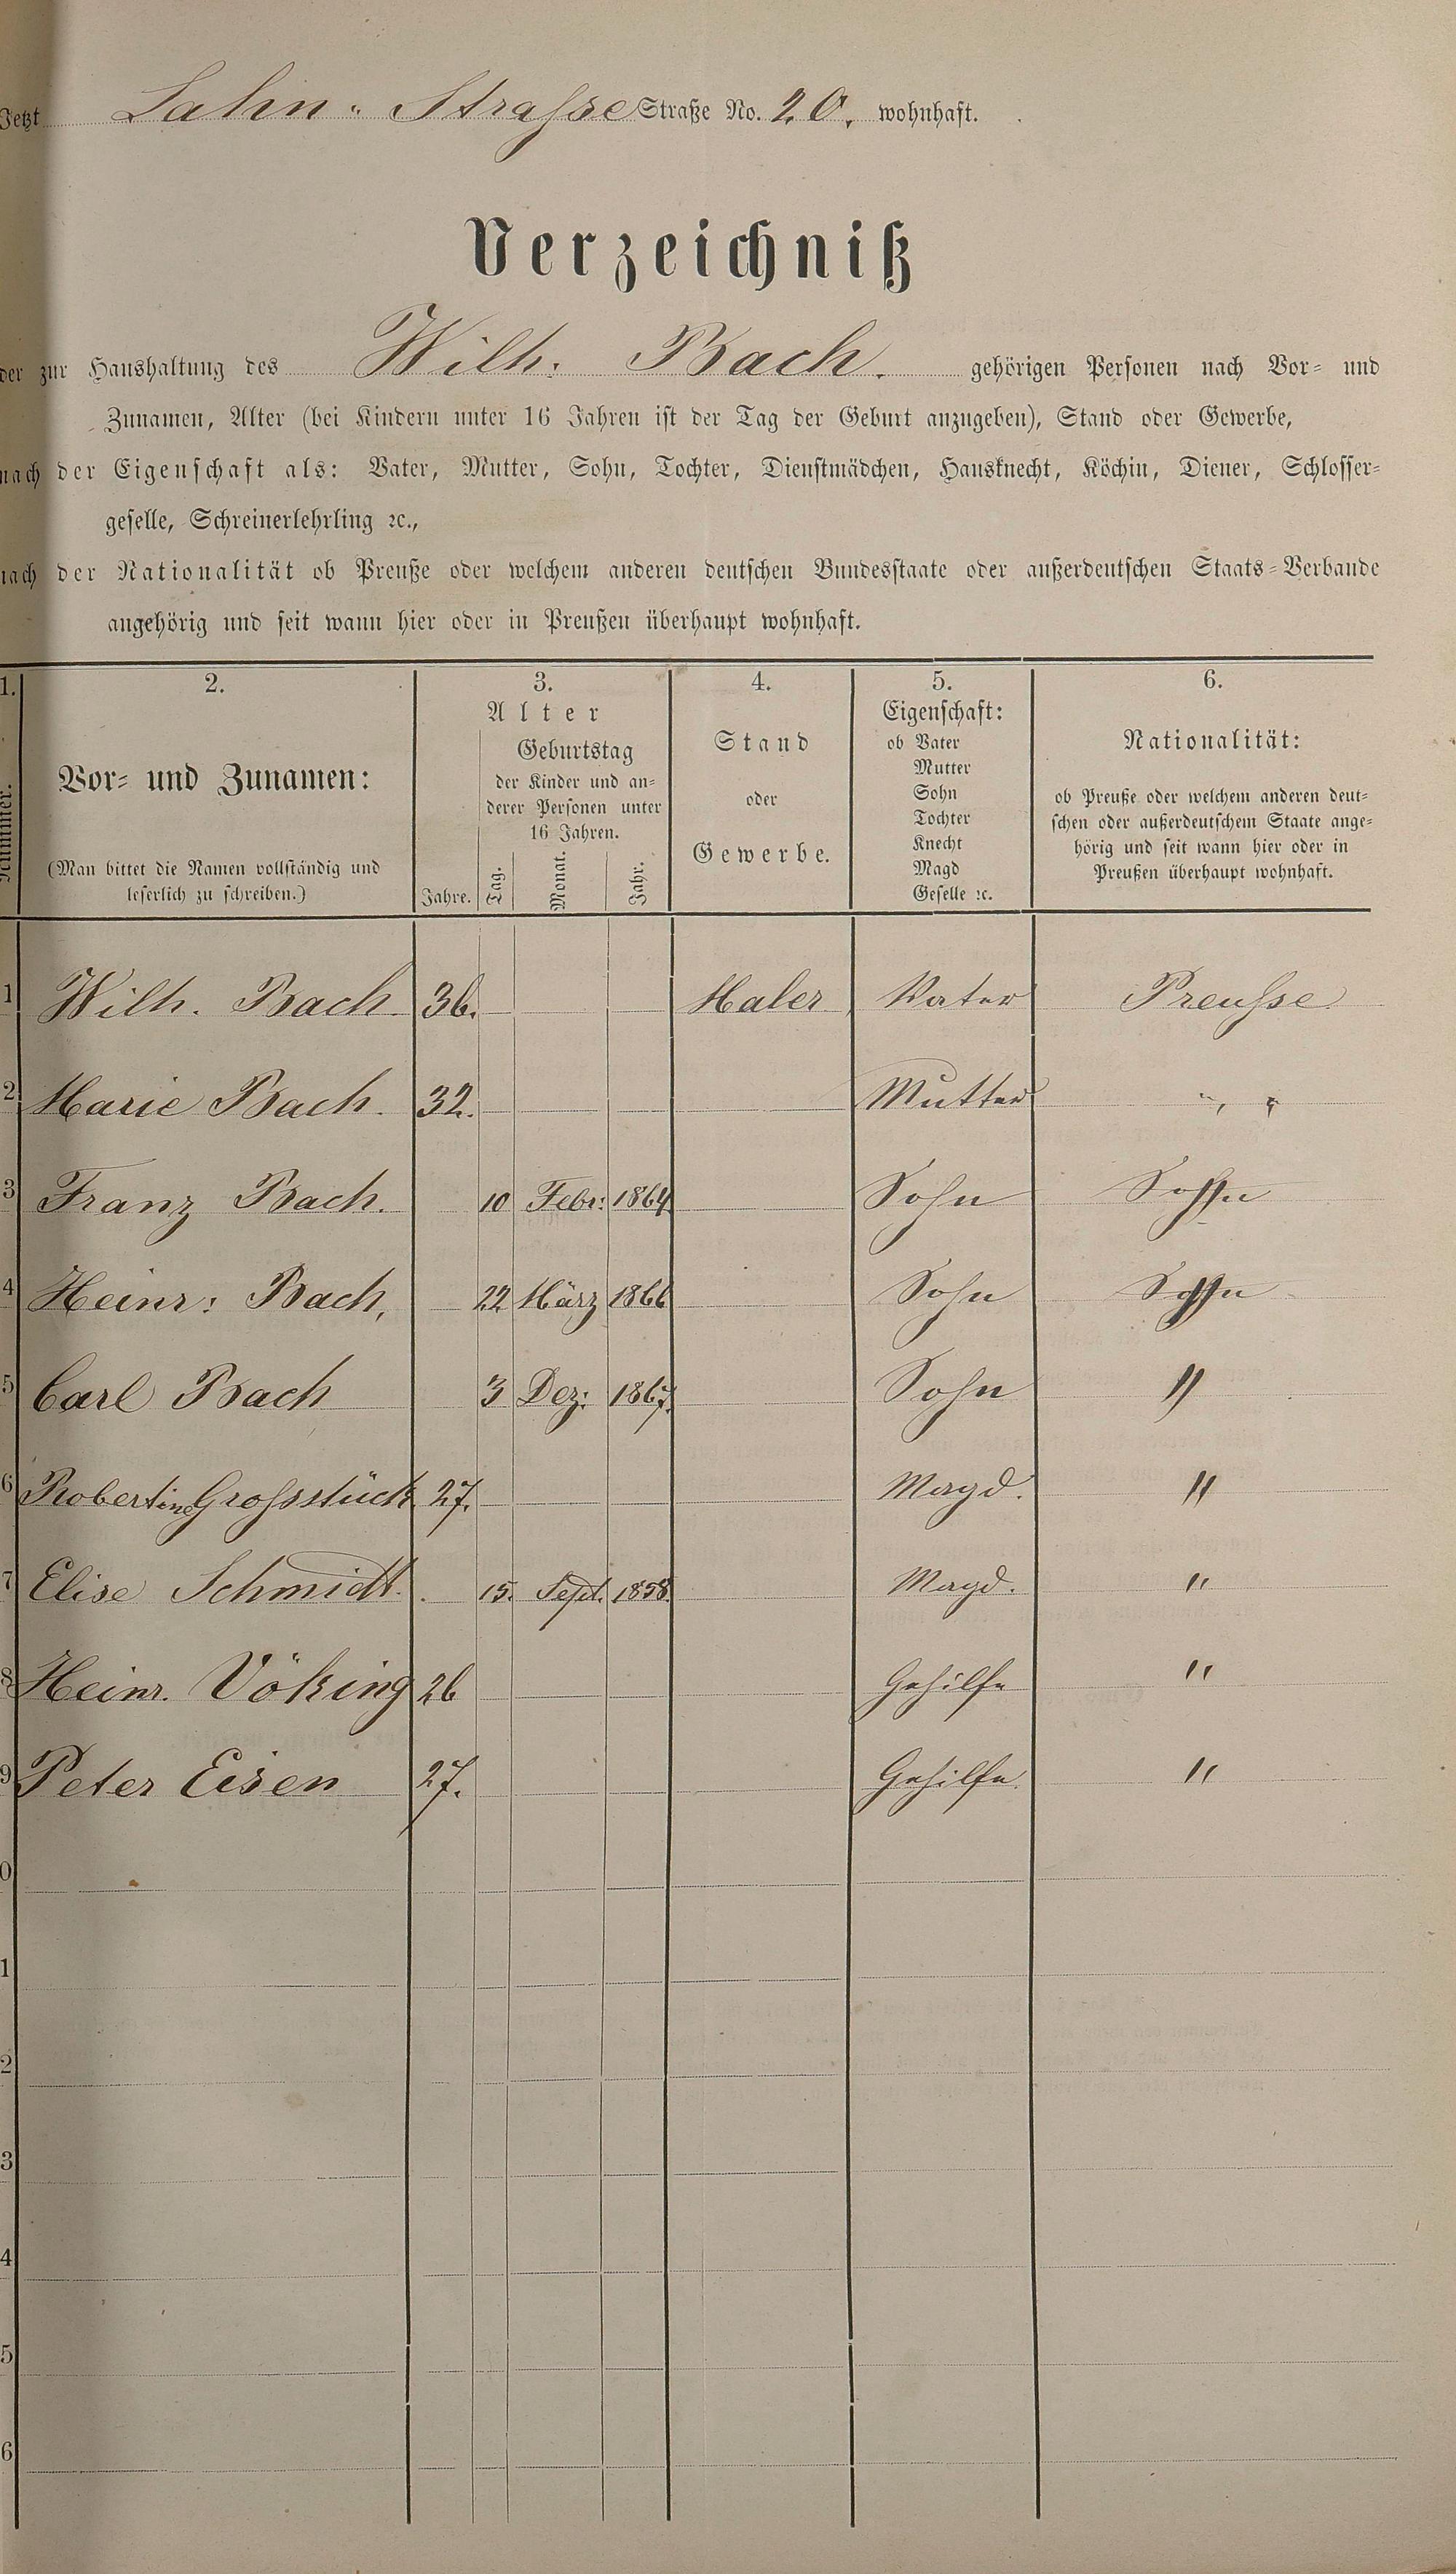 Jetzt Lahn-Strasse Straße No. 20. wohnhaft.
Verzeichniß
der zur Haushaltung des Wilh. Bach. gehörigen Personen nach Vor- und
Zunamen, Alter (bei Kindern unter 16 Jahren ist der Tag der Geburt anzugeben), Stand oder Gewerbe,
nach der Eigenschaft als: Vater, Mutter, Sohn, Tochter, Dienstmädchen, Hausknecht, Köchin, Diener, Schlosser-
geselle, Schreinerlehrling ꝛc.,
nach der Nationalität ob Preuße oder welchem anderen deutschen Bundesstaate oder außerdeutschen Staats-Verbande
angehörig und seit wann hier oder in Preußen überhaupt wohnhaft.
1. 2. 3. 4. 5. 6.
Nummer.
Vor- und Zunamen:
(Man bittet die Namen vollständig und
leserlich zu schreiben.)
Alter
Jahre.
Geburtstag
der Kinder und an-
derer Personen unter
16 Jahren.
Tag. Monat. Jahr.
Stand
oder
Gewerbe.
Eigenschaft:
ob Vater
Mutter
Sohn
Tochter
Knecht
Magd
Geselle ꝛc.
Nationalität:
ob Preuße oder welchem anderen deut-
schen oder außerdeutschem Staate ange-
hörig und seit wann hier oder in
Preußen überhaupt wohnhaft.
1 Wilh. Bach 36. Maler Vater Preusse
2 Marie Bach. 32. Mutter " "
3 Franz Bach. 10 Febr: 1864 Sohn Sohn "
4 Heinr: Bach, 22 März 1866 Sohn Sohn "
5 Carl Bach 3 Dez: 1867. Sohn "
6 Robertine Grossstück 27. Magd. "
7 Elise Schmidt. 15. Sept. 1858. Magd. "
8 Heinr. Vöking 26 Gehülfe "
9 Peter Eisen 27. Gehilfe "
0
1
2
3
4
5
6